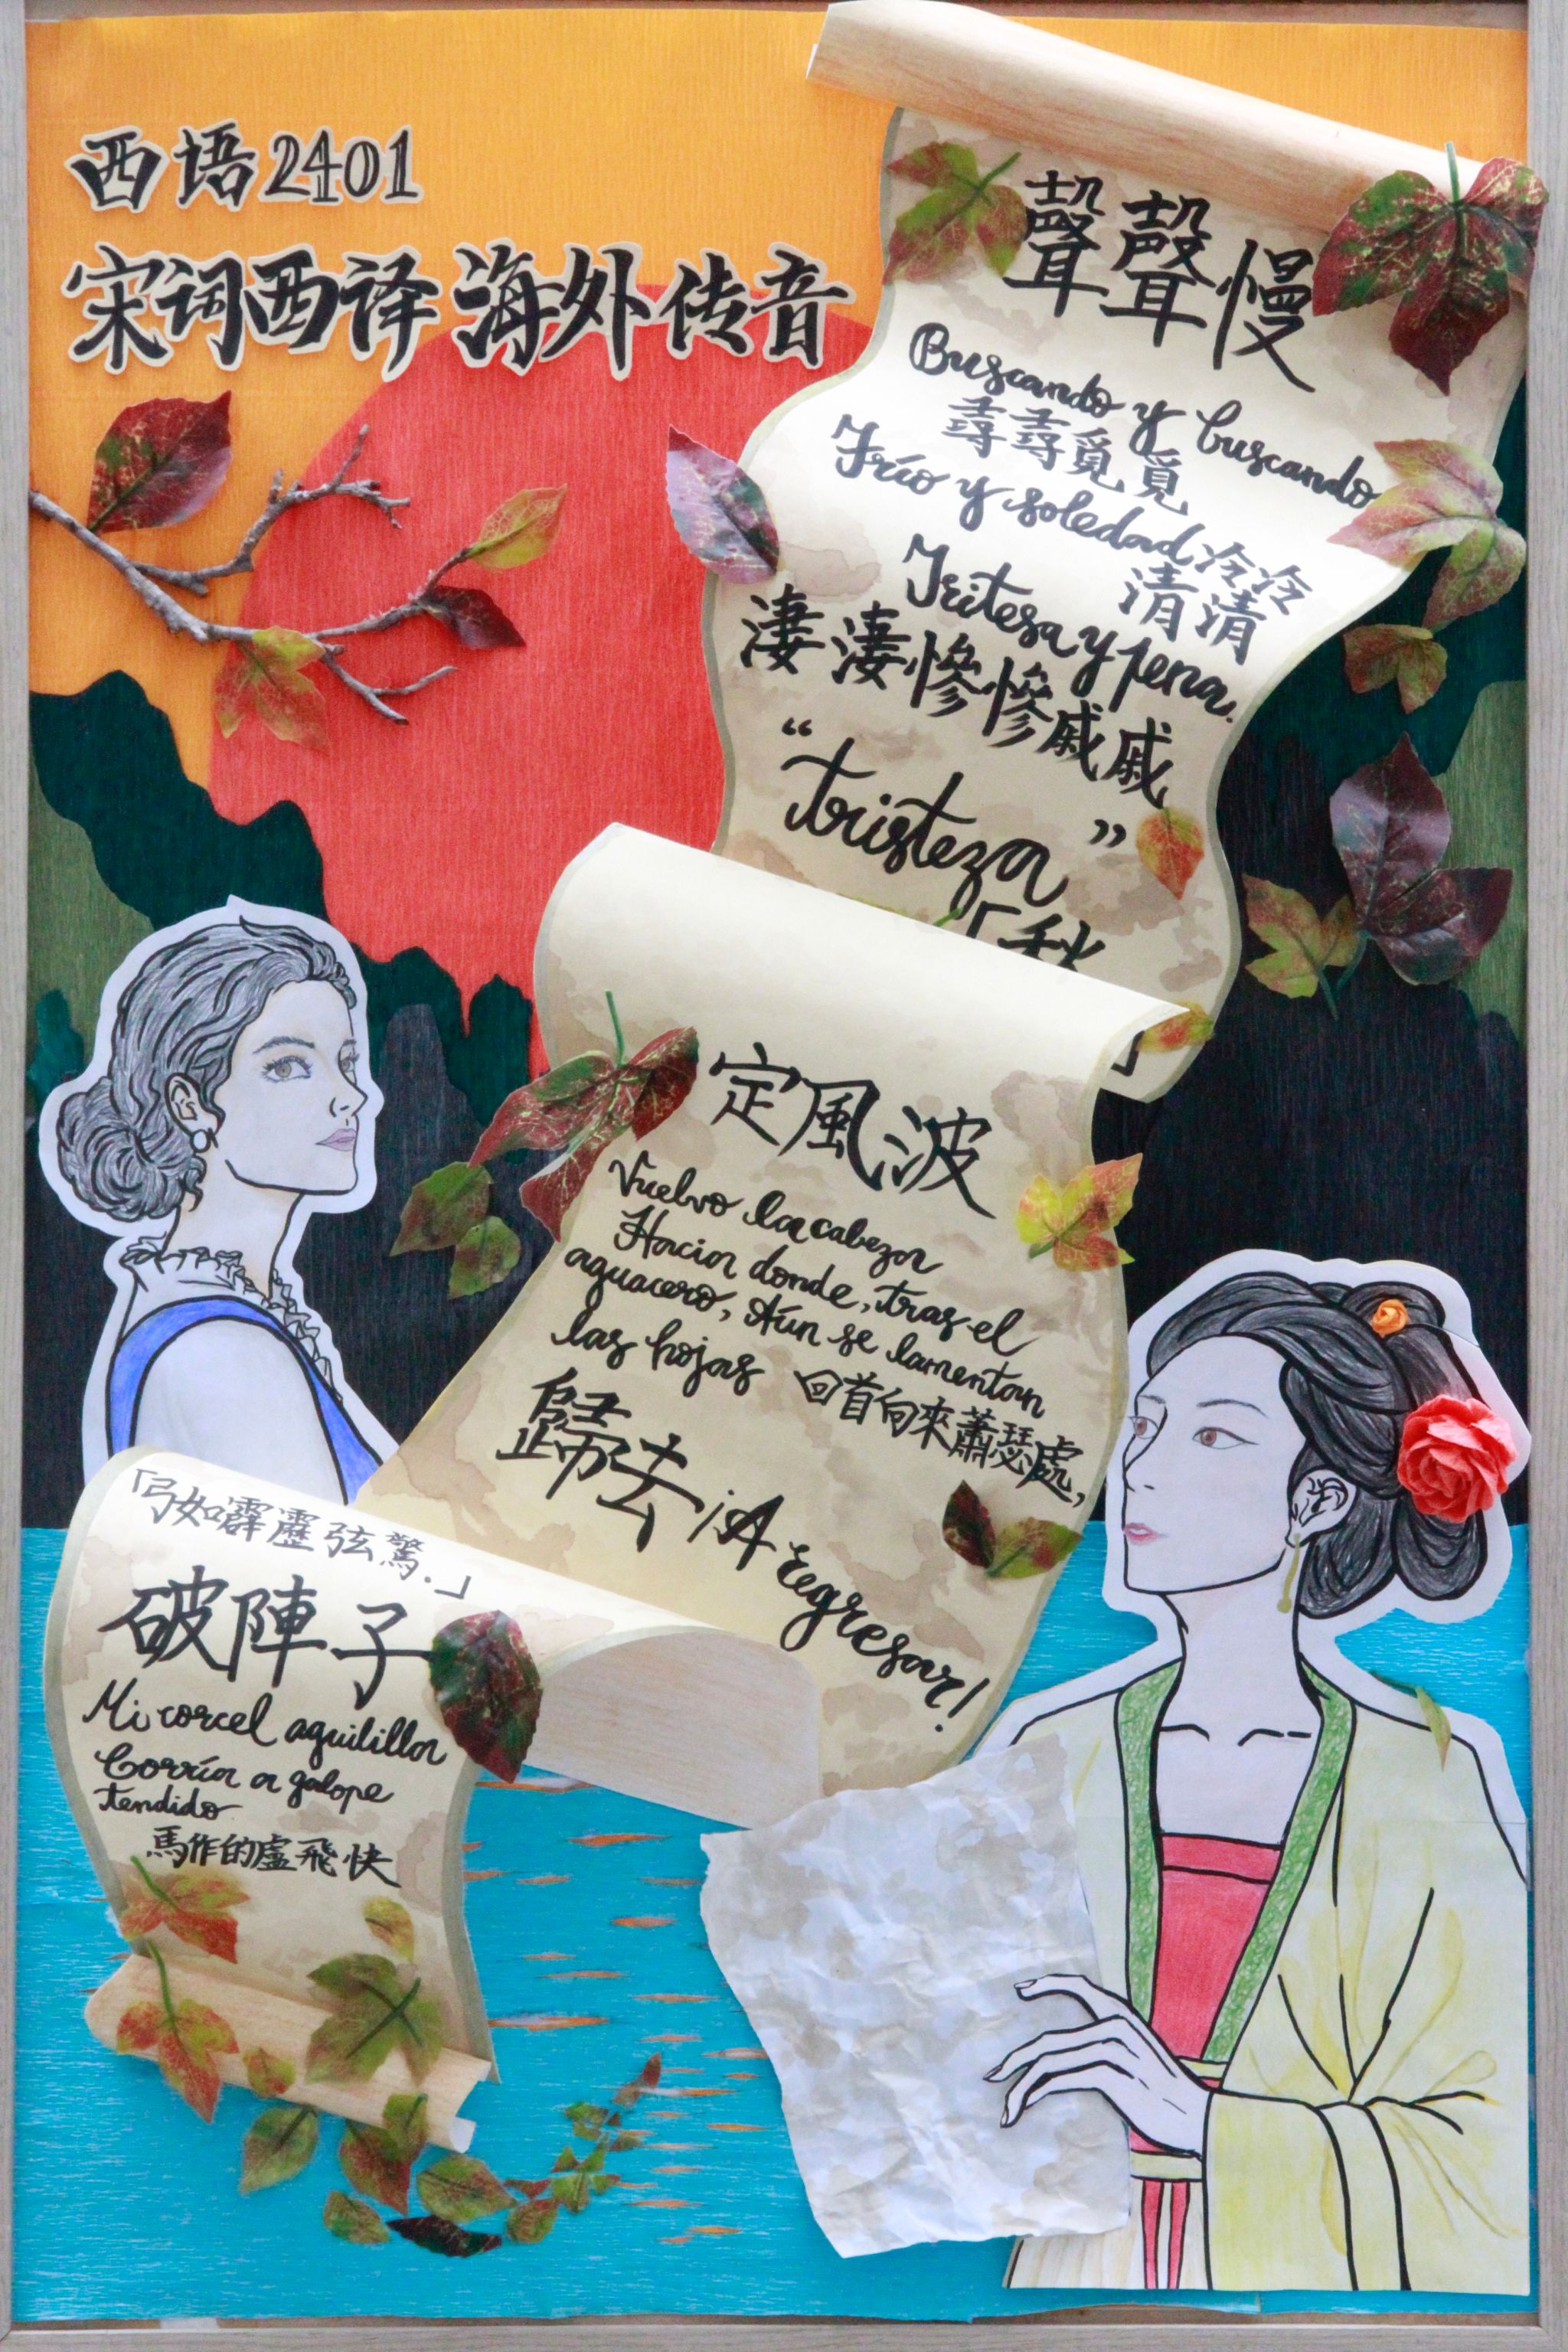 西语2401
宋词西译 海外传音
聲聲慢
Buscando y buscando
尋尋覓覓
Frío y soledad 冷冷
清清
Tritesa y pena.
淒淒慘慘戚戚
“tristeza”
「秋
定風波
Vuelvo la cabeza
Hacia donde, tras el
aguacero, Aún se lamentan
las hojas 回首向來蕭瑟處,
歸去 ¡A regresar!
「弓如霹靂弦驚.」
破陣子
Mi corcel aguililla
Corría a galope
tendido
馬作的盧飛快